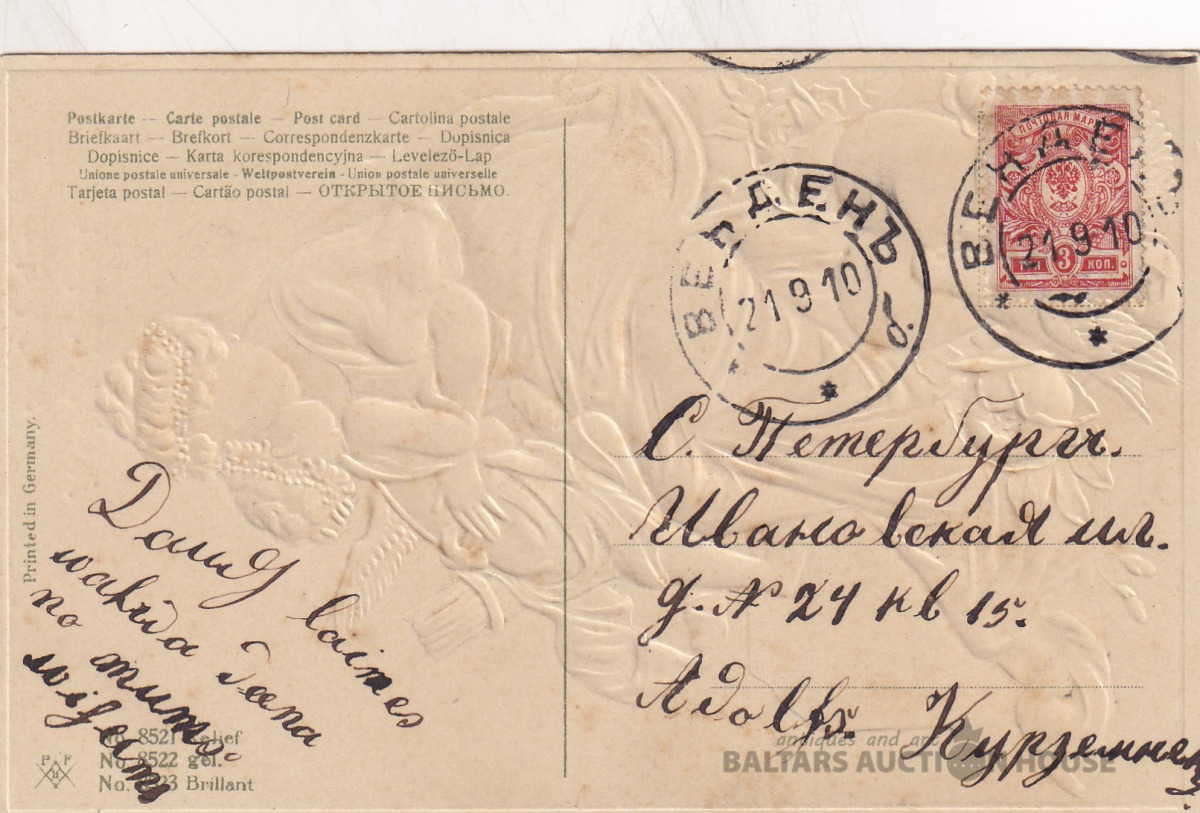 Postkarte -- Carte postale — Post card — Cartolina postale
Briefkaart — Brefkort — Correspondenzkarte — Dopisnica
Dopisnice — Karta korespondencyjna — Levelező-Lap
Unione postale universale - Weltpostverein - Union postale universelle
Tarjeta postal — Cartão postal — ОТКРЫТОЕ ПИСЬМО.
Printed in Germany.
ПОЧТОВАЯ МАР
ТРИ 3 КОП.
ВЕНДЕН
21 9 10
ВЕНДЕНЪ
21 9 10
С. Петербургъ.
Ивановская ул.
д. № 24 кв 15.
Адолfъ. Курземнек
Daudz laimes
wahrda deena
no mums
No. 8521 Relief
No. 8522 gel.
No. 8523 Brillant
antiques and
BALTARS AUCTION HOUSE